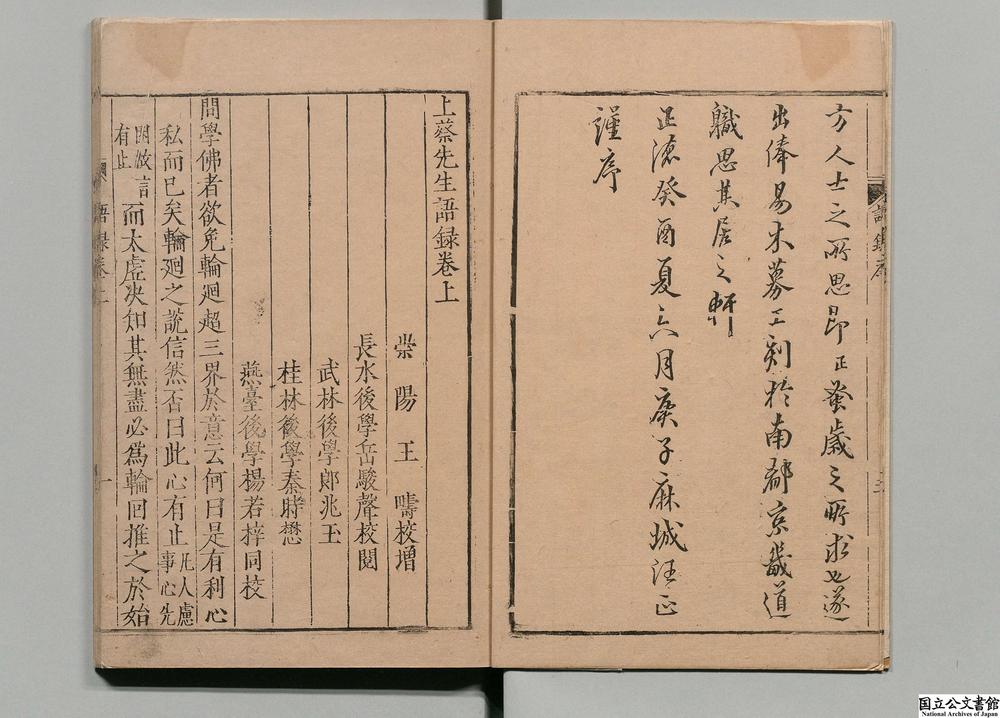 方人士之所思昂正蚤歲之所求也遂
出俸易木募工刻於南都京畿道
職思其居之軒
正德癸酉夏六月庚子麻城汪正
謹序
上蔡先生語録卷上
崇陽王疇校增
長水後學岳駿聲校閱
武林後學郎兆玉
桂林後學秦時懋
燕臺後學楊若梓同校
問學佛者欲免輪廻超三界於意云何曰是有利心
私而已矣輪廻之說信然否曰此心有止凡人慮事心先
有止故言而太虛决知其無盡必為輪回推之於始
語録卷上
一
国立公文書館
National Archives of Japan